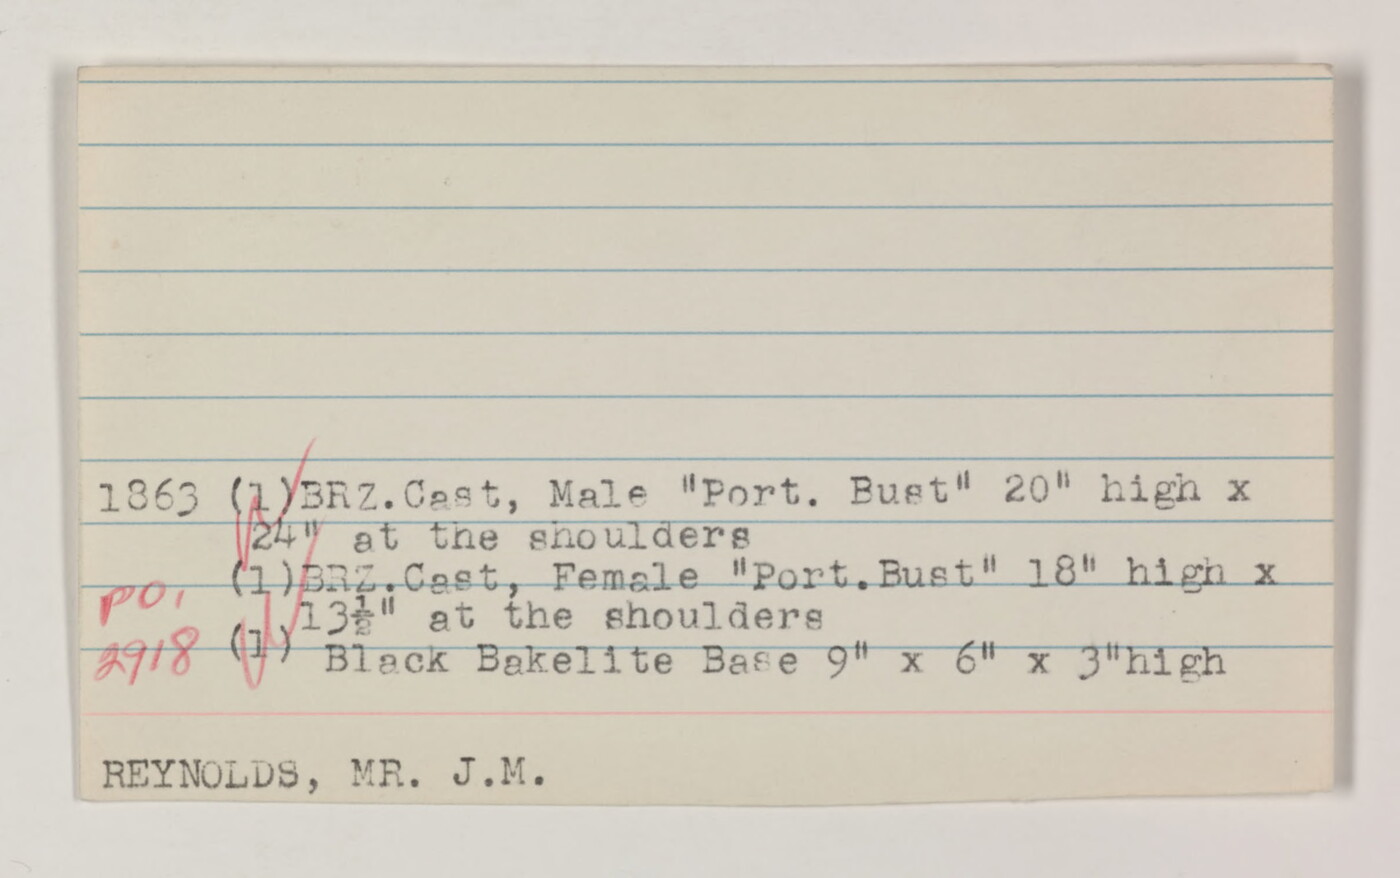 1863 (1)BRZ.Cast, Male "Port. Bust" 20" high x
24" at the shoulders
(1)BRZ.Cast, Female "Port.Bust" 18" high x
po,
13½" at the shoulders
2918 (1) Black Bakelite Base 9" x 6" x 3"high
REYNOLDS, MR. J.M.